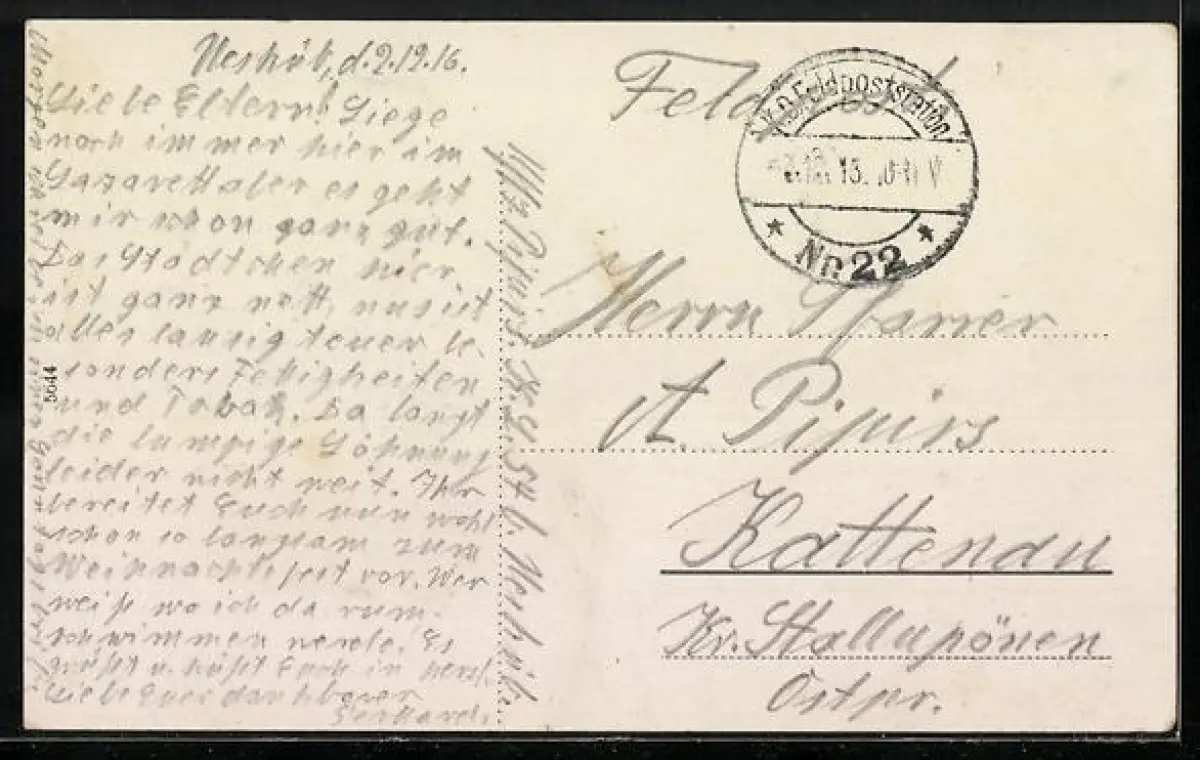 Ueskub, d. 2.12.16.
Liebe Eltern! Liege
noch immer hier im
Lazarett aber es geht
mir schon ganz gut.
Das Städtchen hier
ist ganz nett, nur ist
alles lausig teuer be-
sonders Fettigkeiten
und Tobak. Da langt
die lumpige Löhnung
leider nicht weit. Ihr
bereitet Euch nun wohl
schon so langsam zum
Weihnachtsfest vor. Wer
weiß wo ich da rum-
schwimmen werde. Es
grüßt u. küßt Euch in herzl.
Liebe Euer dankbarer
Gerhard.
Morgen
5644
Pipirs
Feldpost
Feldpoststation
Nr. 22
Herrn Pfarrer
A. Pipirs
Kattenau
Kr. Stallupönen
Ostpr.